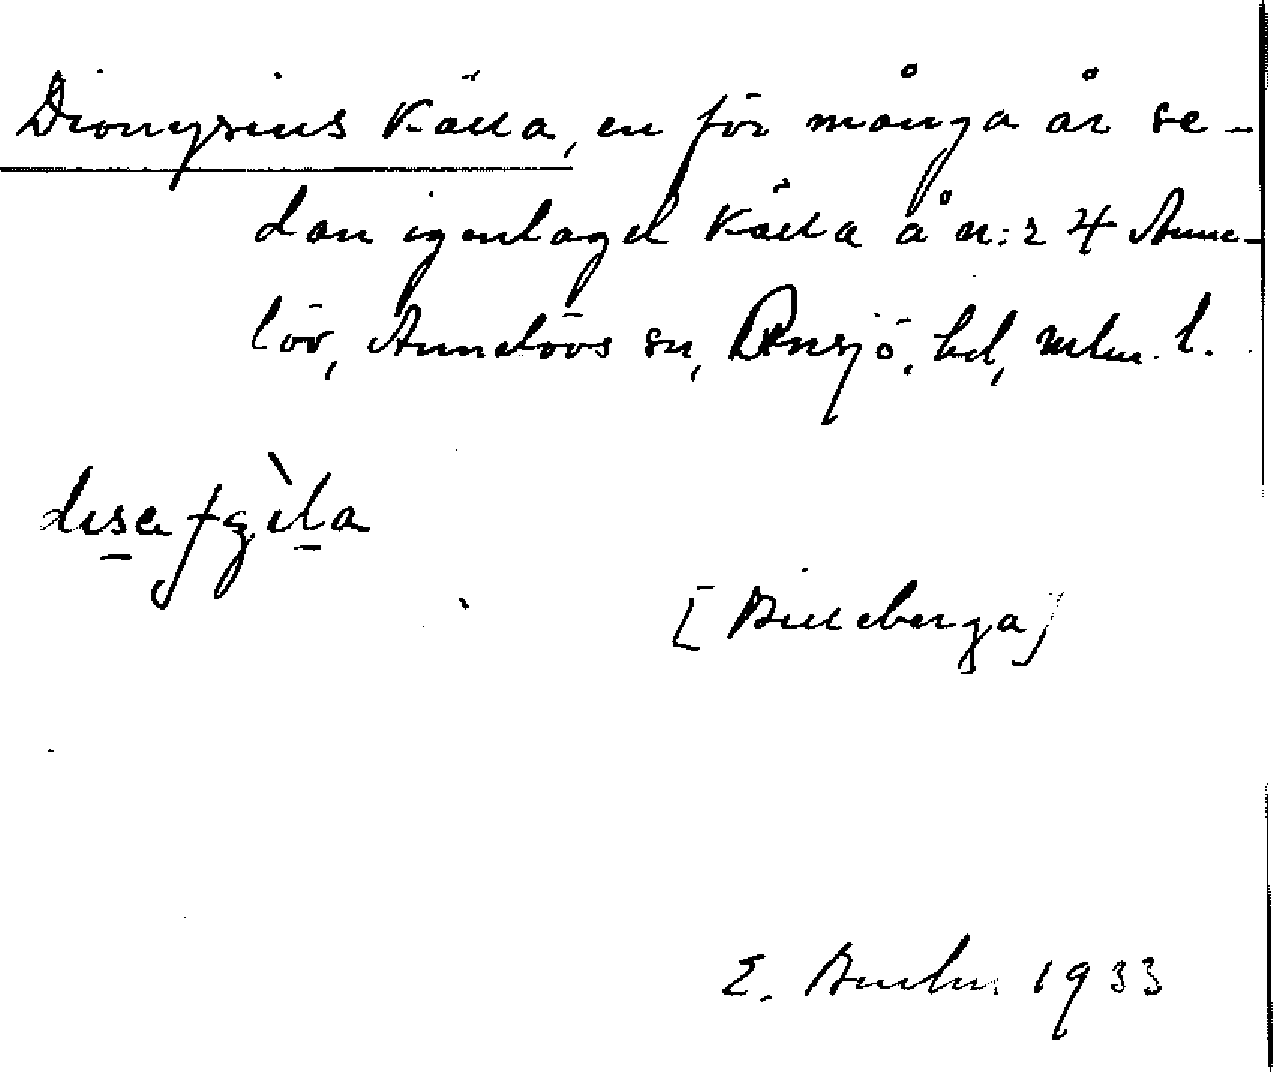 Dionysius källa, en för många år se-
dan igenlagd källa å n:r 4 Anne-
löv, Annelövs sn, Onsjö hd, Mlm. l.
[Billeberga]
E. 1933